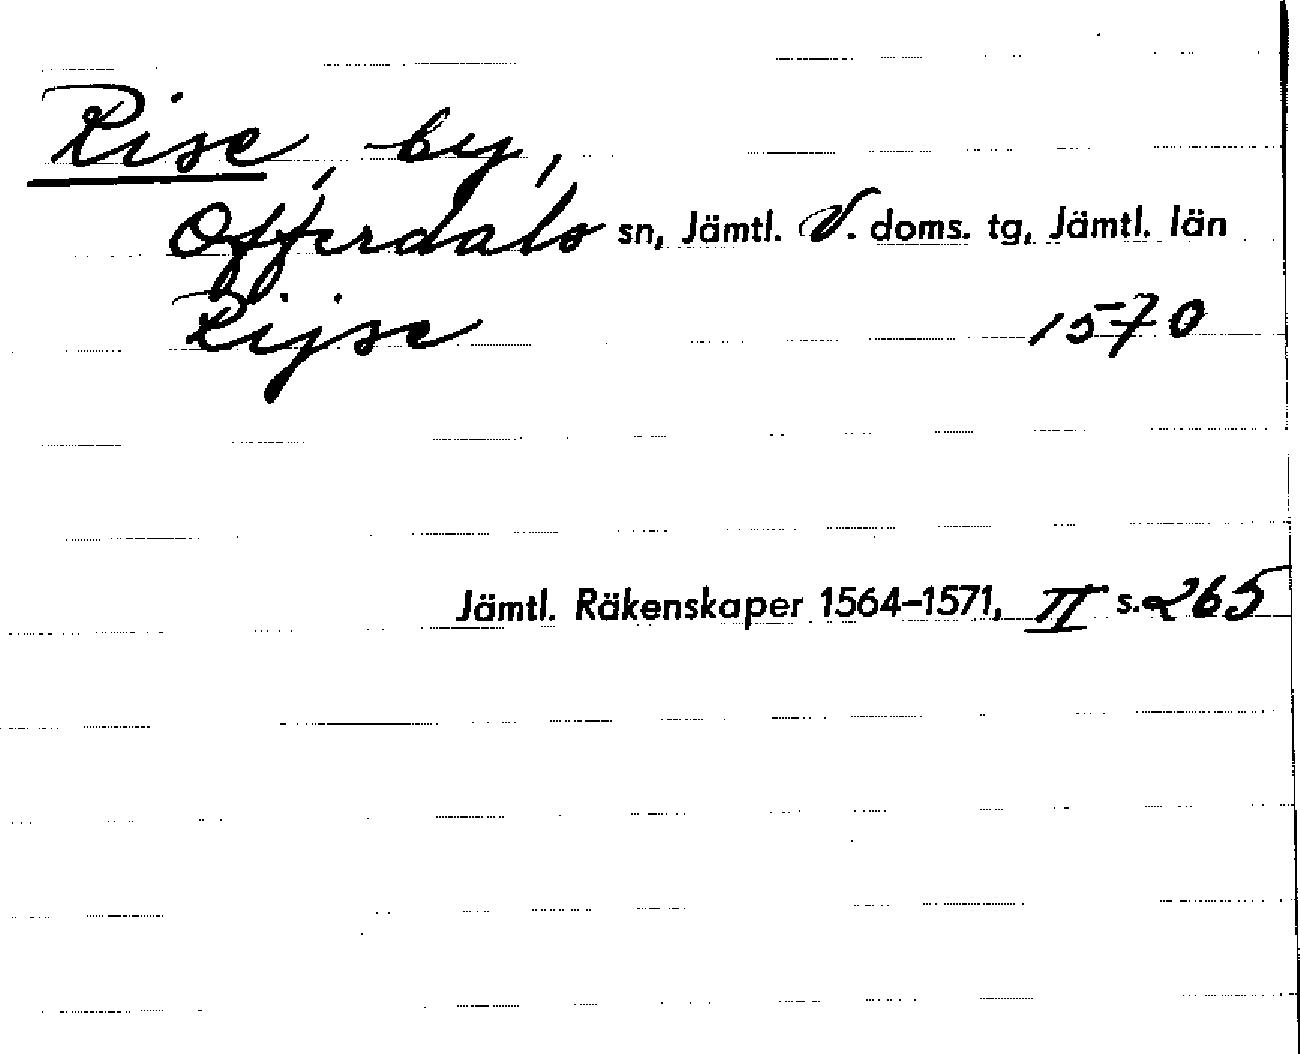 Rise, by,
Offerdals sn, Jämtl. V. doms. tg, Jämtl. län
Rijse 1570
Jämtl. Räkenskaper 1564-1571, II s. 265